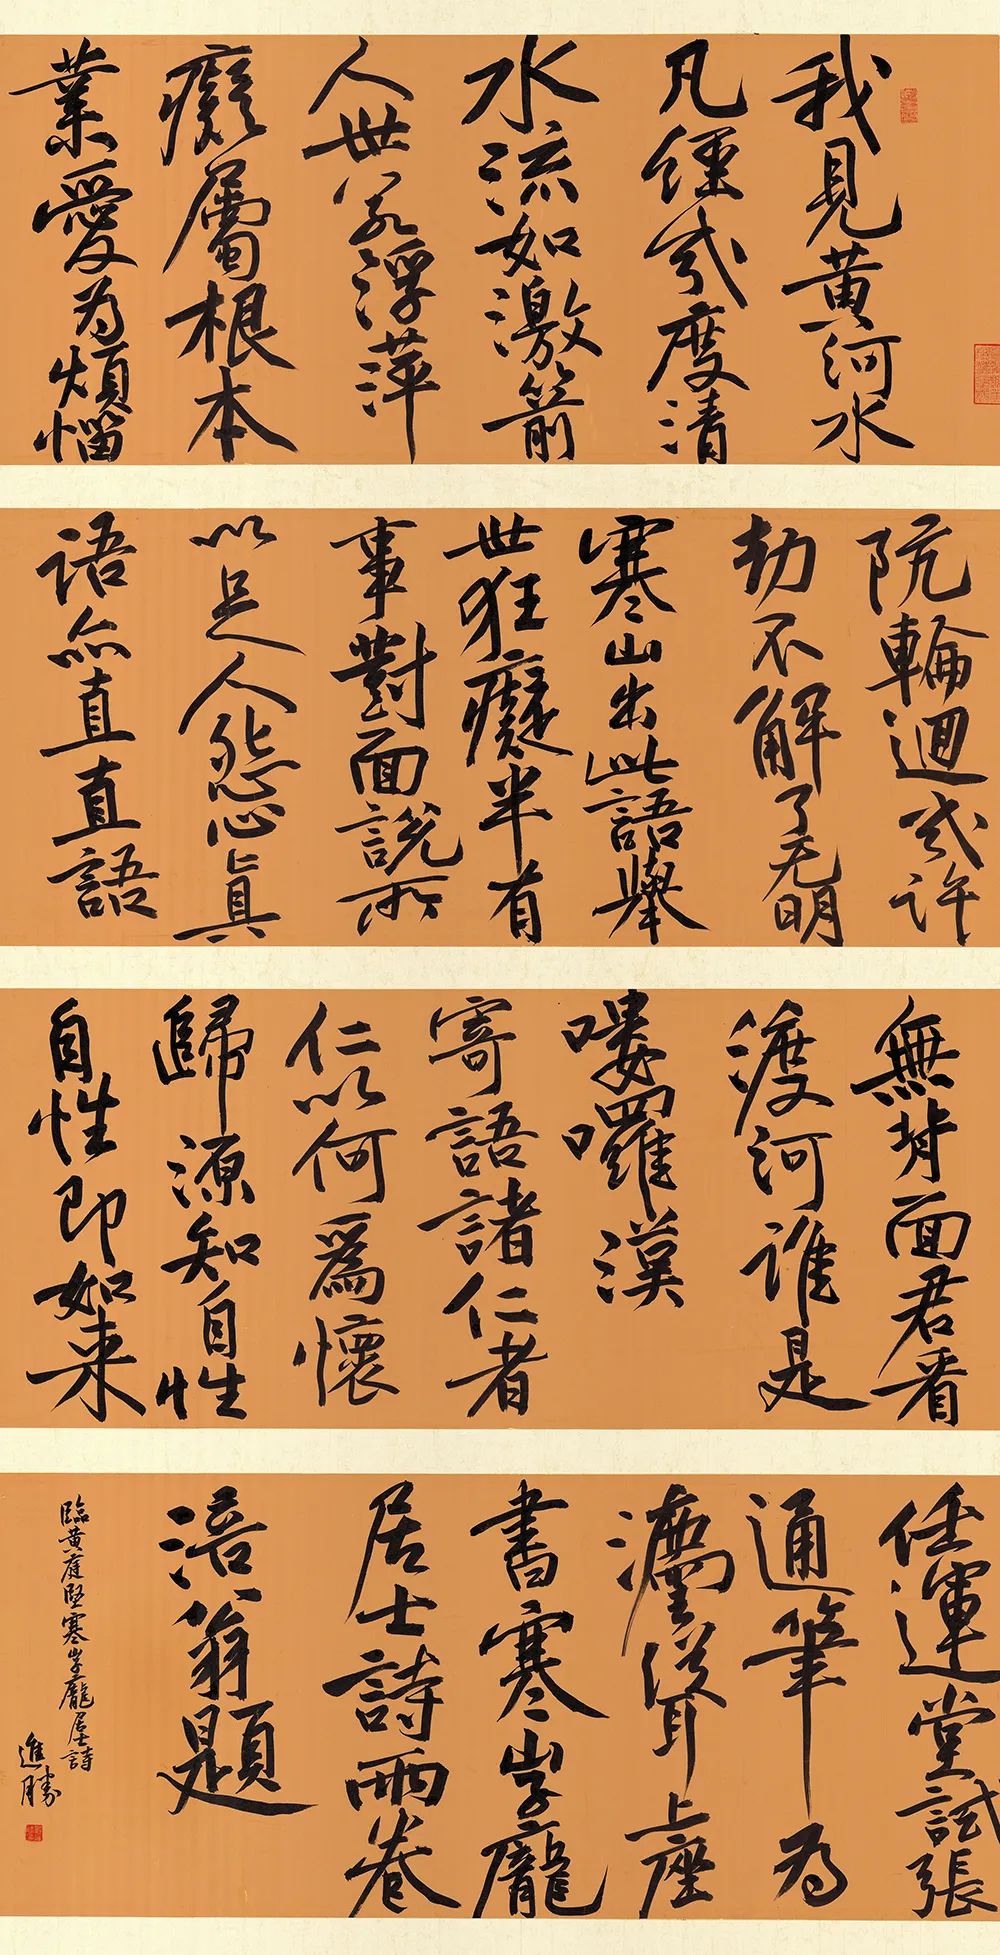 我見黄河水
凡經幾度清
水流如激箭
人世若浮萍
癡屬根本
業愛為煩惱
阬輪迴幾許
劫不解了无明
寒山出此語舉
世狂癡半有
事對面說所
以足人怨心真
語亦直直語
無背面君看
渡河誰是
嘍囉漢
寄語諸仁者
仁以何爲懷
歸源知自性
自性即如来
任運堂試張
通筆為
灋聳上座
書寒山子龐
居士詩兩卷
涪翁題
臨黄庭堅寒山子龐居士詩
進勝